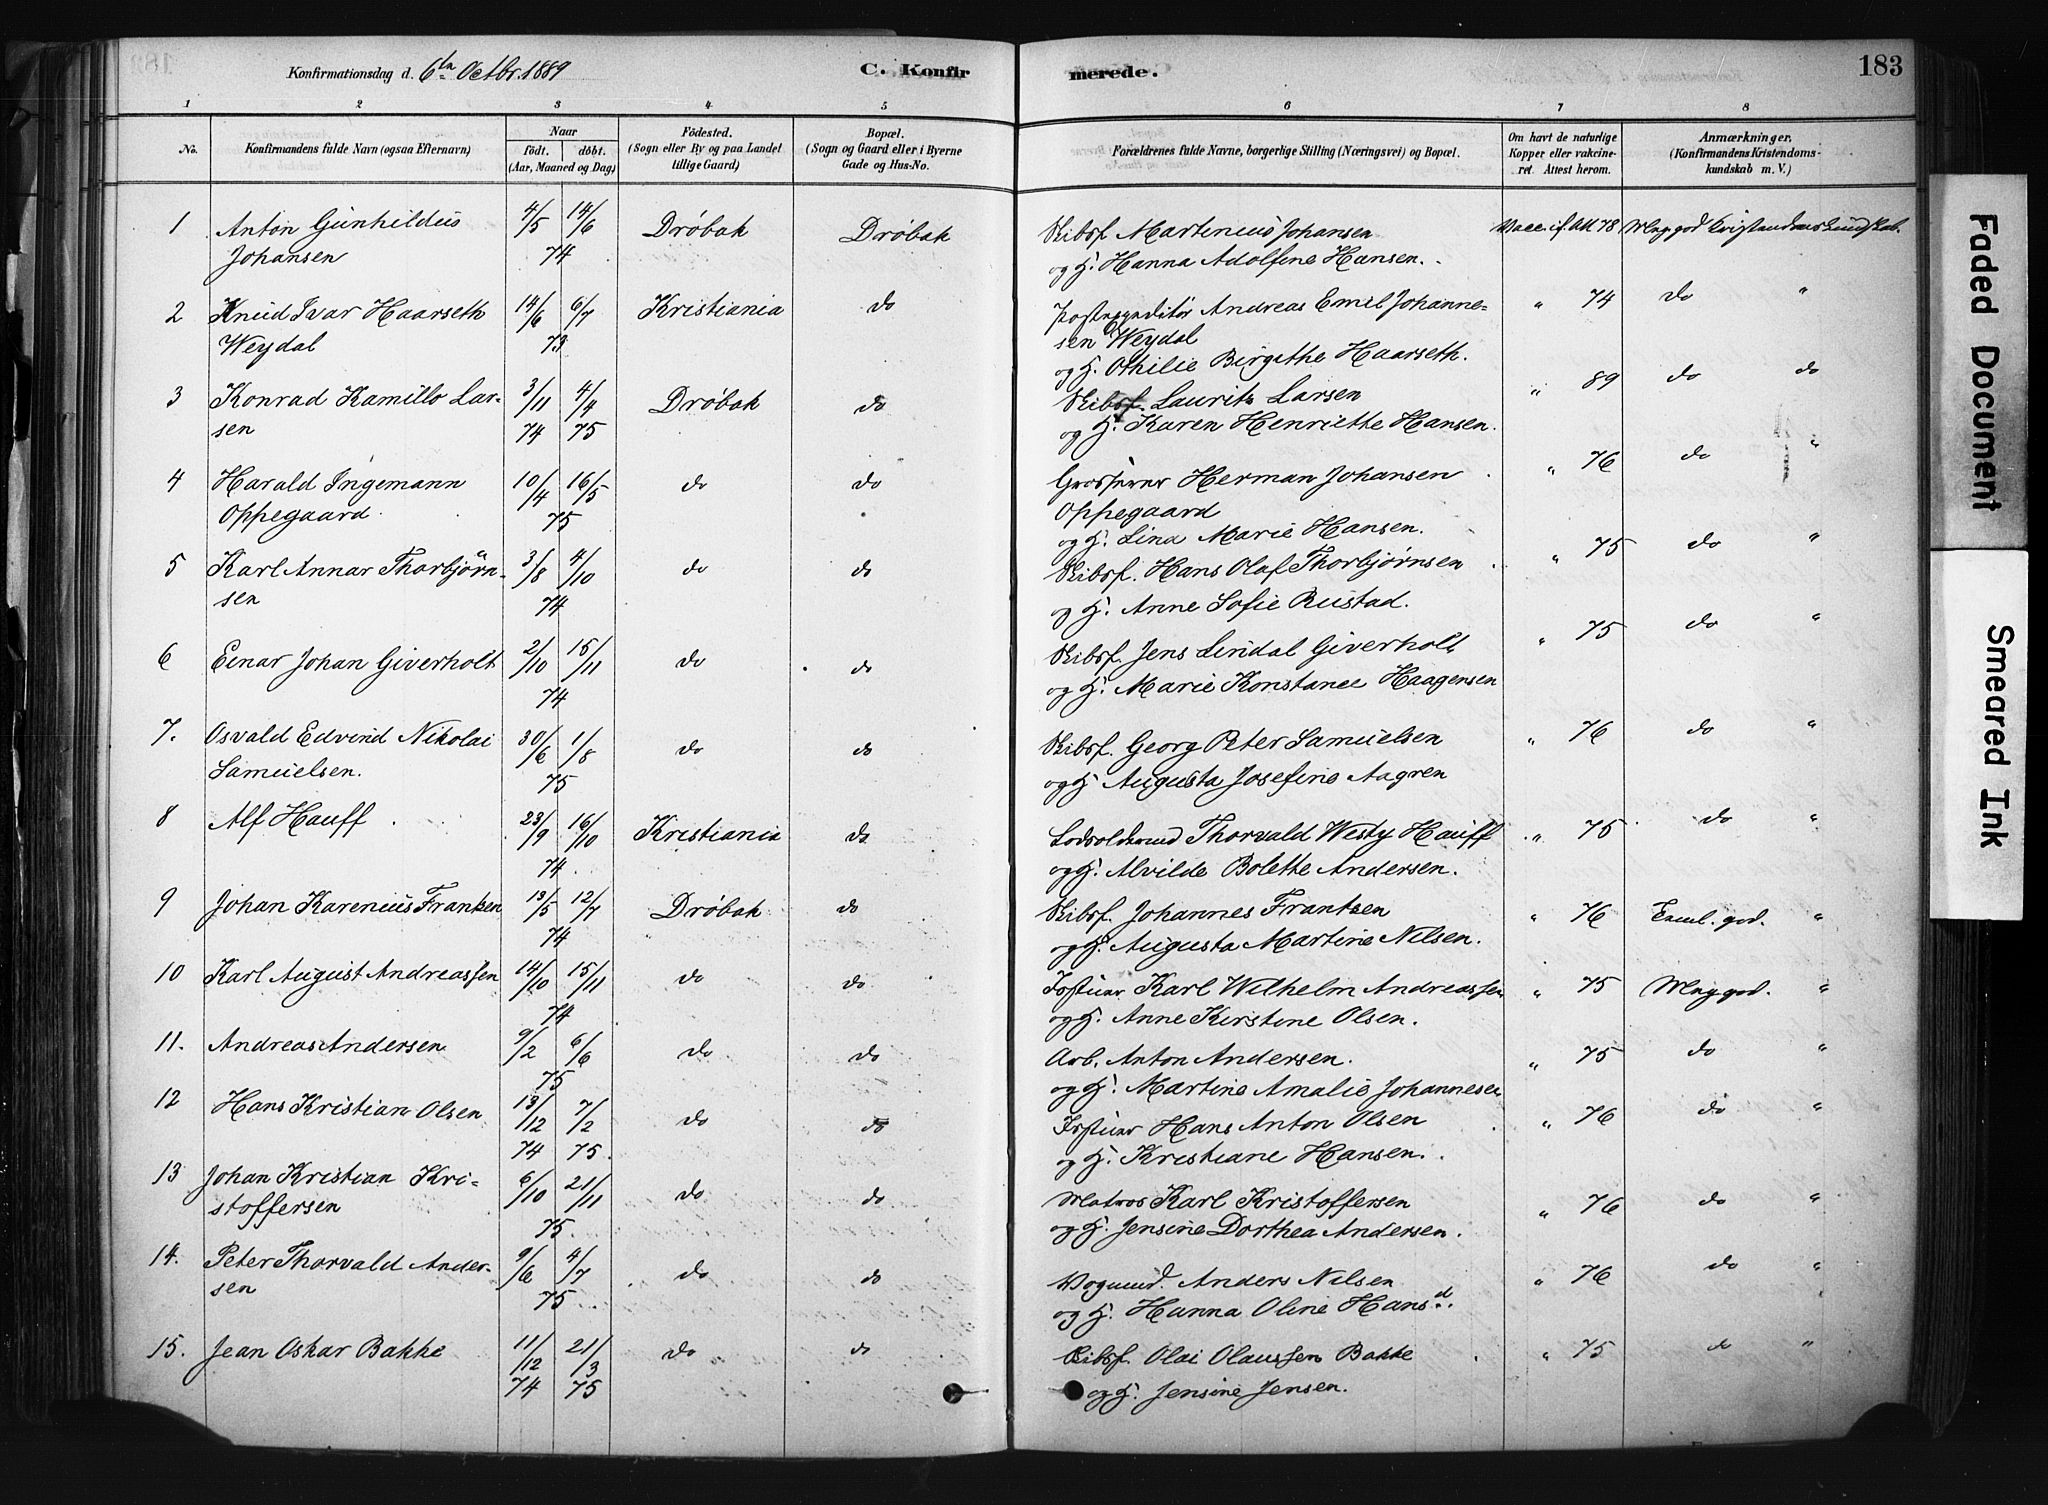 Konfirmationsdag d. 6te Octbr. 1889
C. Konfir
merede.
183
1 2 3 4 5 6 7 8
No.
Konfirmandens fulde Navn (ogsaa Efternavn)
Naar
Födt. döbt.
(Aar, Maaned og Dag)
Födested.
(Sogn eller By og paa Landet
tillige Gaard)
Bopæl.
(Sogn og Gaard eller i Byerne
Gade og Hus-No.
Forældrenes fulde Navne, borgerlige Stilling (Næringsvei) og Bopæl.
Om havt de naturlige
Kopper eller vakcine-
ret. Attest herom.
Anmærkninger.
(Konfirmandens Kristendoms-
kundskab m. V.)
1 Anton Gunhildus 4/5 14/6 Drøbak Drøbak Skibsf. Martinius Johansen Vacc. if. Att 78 Meg. god Kristendomskundskab.
Johansen 74 og H. Hanna Adolfine Hansen.
2 Knud Ivar Haarseth 14/6 6/7 Kristiania do Postexpeditør Andreas Emil Johanne- " 74 do "
Weydal 73 sen Weydal
og H. Othilie Birgithe Haarseth.
3 Konrad Kamillo Lar- 3/11 4/4 Drøbak do Skibsf. Lauritz Larsen " 89 do do
sen 74 75 og H. Karen Henriette Hansen.
4 Harald Ingemann 10/4 16/5 do do Grosserer Herman Johansen " 76 do "
Oppegaard. 75 Oppegaard
og H. Lina Marie Hansen.
5 Karl Annar Thorbjørn- 3/8 4/10 do do Skibsf. Hans Olaf Thorbjørnsen " 75 do "
sen 74 og H. Anne Sofie Rustad.
6 Einar Johan Giverholt 2/10 15/11 do do Skibsf. Jens Lindal Giverholt " 75 do "
74 og H. Marie Konstance Haagensen
7. Osvald Edvind Nikolai 30/6 1/8 do do Skibsf. Georg Peter Samuelsen " 76 do "
Samuelsen. 75 og H Augusta Josefine Aagren
8 Alf Hauff 23/9 16/10 Kristiania do Lodsoldermd Thorvald Westy Hauff " 75 do "
74 og H. Alvilde Bolette Andersen.
9 Johan Karenius Frantzen 13/5 12/7 Drøbak do Skibsf. Johannes Frantzen " 76 Teml. god. "
74 og H. Augusta Martine Nilsen.
10 Karl August Andreassen 14/10 15/11 do do Karl Wilhelm Andreassen " 75 Meg. god. "
74 og H. Anne Kirstine Olsen.
11. Andreas Andersen 9/2 6/6 do do Arb. Anton Andersen. " 75 do "
75 og H. Martine Amalie Johannesen
12 Hans Kristian Olsen 13/12 7/2 do do Hans Anton Olsen " 76 do "
74 75. og H. Kristiane Hansen.
13 Johan Kristian Kri- 6/10 21/11 do do Matros Karl Kristoffersen " 76 do "
stoffersen 75. og H. Jensine Dorthea Andersen.
14. Peter Thorvald Ander- 9/6 4/7 do do Vognmd. Anders Nilsen " 76 do "
sen 75 og H. Hanna Oline Hansd.
15. Jean Oskar Bakke 11/12 21/3 do do Skibsf. Olai Olaussen Bakke " 75 do "
74 75 og H. Jensine Jensen.
Faded Document
Smeared Ink